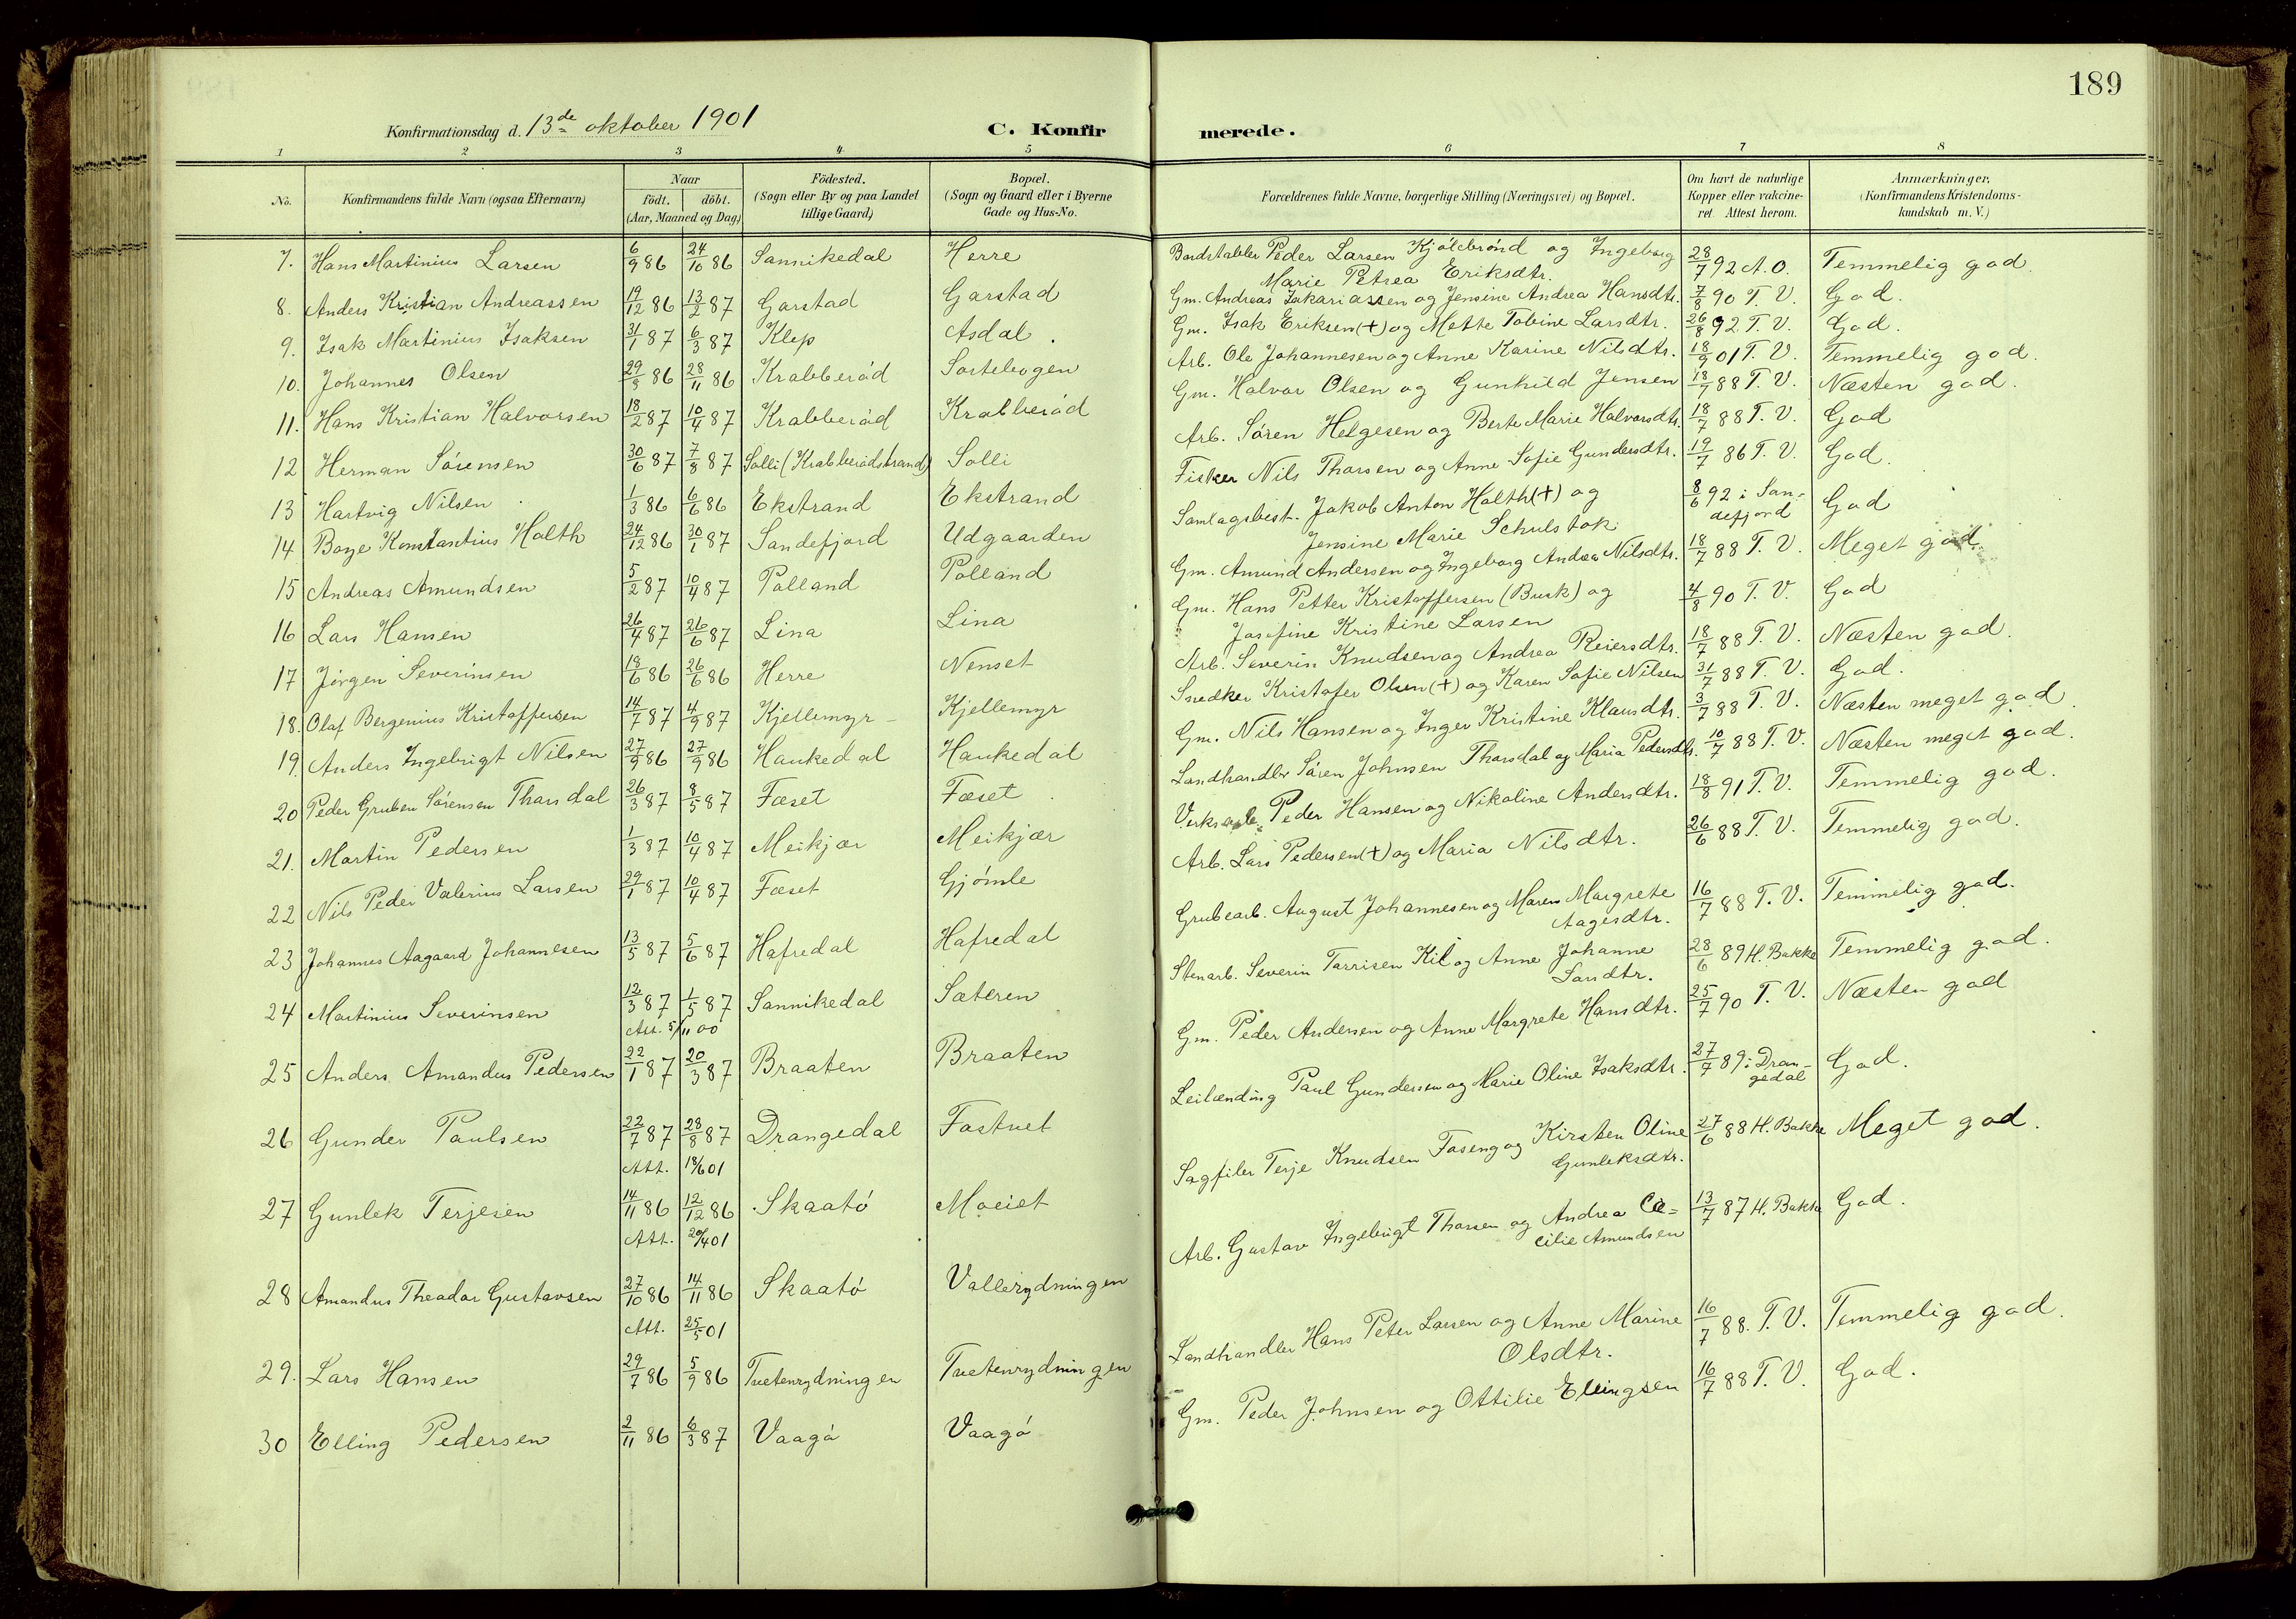 189
Konfirmationsdag d. 13de oktober 1901 C. Konfirmerede.
1 2 3 4 5 6 7 8
No. Konfirmandens fulde Navn (ogsaa Efternavn) Naar födt. döbt. (Aar, Maaned og Dag) Födested. (Sogn eller By og paa Landet tillige Gaard) Bopæl. (Sogn og Gaard eller i Byerne Gade og Hus-No. Forældrenes fulde Navne, borgerlige Stilling (Næringsvei) og Bopæl. Om havt de naturlige Kopper eller vakcineret Attest herom. Anmærkninger. (Konfirmandens Kristendomskundskab m. V.)
7. Hans Martinius Larsen 6/9 86 24/10 86 Sannikedal Herre Bordstabler Peder Larsen Kjölebrönd og Ingeborg Marie Petrea Eriksdtr. 28/7 92 A. O. Temmelig god.
8. Anders Kristian Andreassen 19/12 86 13/2 87 Garstad Garstad Gm. Andreas Zakariassen og Jensine Andrea Hansdtr. 7/8 90 T. V. God.
9. Isak Martinius Isaksen 31/1 87 6/3 87 Klep Asdal. Gm. Isak Eriksen (+) og Mette Tobine Larsdtr. 26/8 92 T. V. God.
10. Johannes Olsen 29/9 86 28/11 86 Krabberöd Sortebogen Arb. Ole Johannesen og Anne Karine Nilsdtr. 18/9 01 T. V. Temmelig god.
11. Hans Kristian Halvorsen 18/2 87 10/4 87 Krabberöd Krabberöd Gm. Halvor Olsen og Gunhild Jensen 18/7 88 T. V. Næsten god.
12 Herman Sörensen 30/6 87 7/8 87 Solli (Krabberödstrand) Solli Arb. Sören Helgesen og Berte Marie Halvorsdtr. 18/7 88 T. V. God
13 Hartvig Nilsen 1/3 86 6/6 86 Ekstrand Ekstrand Fisker Nils Thorsen og Anne Sofie Gundersdtr. 19/7 86 T. V. God.
14 Boye Konstantius Holth 24/12 86 30/1 87 Sandefjord Udgaarden Samlagsbest. Jakob Anton Holth (+) og Jensine Marie Schulstok 8/6 92 i Sandefjord God
15 Andreas Amundsen 5/2 87 10/4 87 Polland Polland Gm. Amund Andersen og Ingeborg Andrea Nilsdtr. 18/7 88 T. V. Meget god.
16 Lars Hansen 26/4 87 26/6 87 Lina Lina Gm. Hans Petter Kristoffersen (Busk) og Josefine Kristine Larsen 4/8 90 T. V. God
17 Jörgen Severinsen 18/6 86 26/6 86 Herre Nenset Arb. Severin Knudsen og Andrea Reiersdtr. 18/7 88 T. V. Næsten god.
18. Olaf Bergenius Kristoffersen 14/7 87 4/9 87 Kjellemyr Kjellemyr Snedker Kristofer Olsen (+) og Karen Sofie Nilsen 31/7 88 T. V. God.
19. Anders Ingebrigt Nilsen 27/9 86 27/9 86 Haukedal Haukedal Gm. Nils Hansen og Inger Kristine Klausdtr. 3/7 88 T. V. Næsten meget god.
20 Peder Gruben Sörensen Thorsdal 26/3 87 8/5 87 Fæset Fæset Landhandler Sören Johnsen Thorsdal og Maria Pedersdtr. 10/7 88 T. V. Næsten meget god.
21. Martin Pedersen 1/3 87 10/4 87 Meikjær Meikjær Verksarb. Peder Hansen og Nikoline Andersdtr. 18/8 91 T. V. Temmelig god.
22 Nils Peder Valerius Larsen 29/1 87 10/4 87 Fæset Gjömle Arb. Lars Pedersen (+) og Maria Nilsdtr. 26/6 88 T. V. Temmelig god.
23 Johannes Aagaard Johannesen 13/5 87 5/6 87 Hafredal Hafredal Grubearb. August Johannesen og Maren Margrete Aagesdtr. 16/7 88 T. V. Temmelig god.
24 Martinius Severinsen 12/3 87 1/5 87 Sannikedal Sæteren Stenarb. Severin Torrisen Kil og Anne Johanne 28/6 89 H. Bakke Temmelig god.
Att. 5/11 00
25 Anders Amandus Pedersen 22/1 87 20/3 87 Braaten Braaten Gm. Peder Andersen og Anne Margrete Hansdtr. 25/7 90 T. V. Næsten god
26 Gunder Paulsen 22/7 87 28/8 87 Drangedal Fostvet Leilænding Paul Gundersen og Marie Oline Isaksdtr. 27/9 89 i Drangedal God.
Att. 18/6 01
27 Gunlek Terjesen 14/11 86 12/12 86 Skaatö Moeiet Sagfiler Terje Knudsen Foseng og Kirsten Oline Gunleksdtr. 27/6 88 H. Bakke Meget god.
Att. 20/4 01
28 Amandus Theodor Gustavsen 27/10 86 14/11 86 Skaatö Vallerydningen Arb. Gustav Ingebrigt Thorsen og Andrea Cecilie Amundsen 13/7 87 H. Bakke God.
Att. 25/5 01
29. Lars Hansen 29/7 86 5/9 86 Tvetenrydningen Tvetenrydningen Landhandler Hans Peter Larsen og Anne Marine Olsdtr. 16/7 88. T. V. Temmelig god.
30 Elling Pedersen 2/11 86 6/3 87 Vaagö Vaagö Gm. Peder Johnsen og Ottilie Ellingsen 16/7 88 T. V. God.